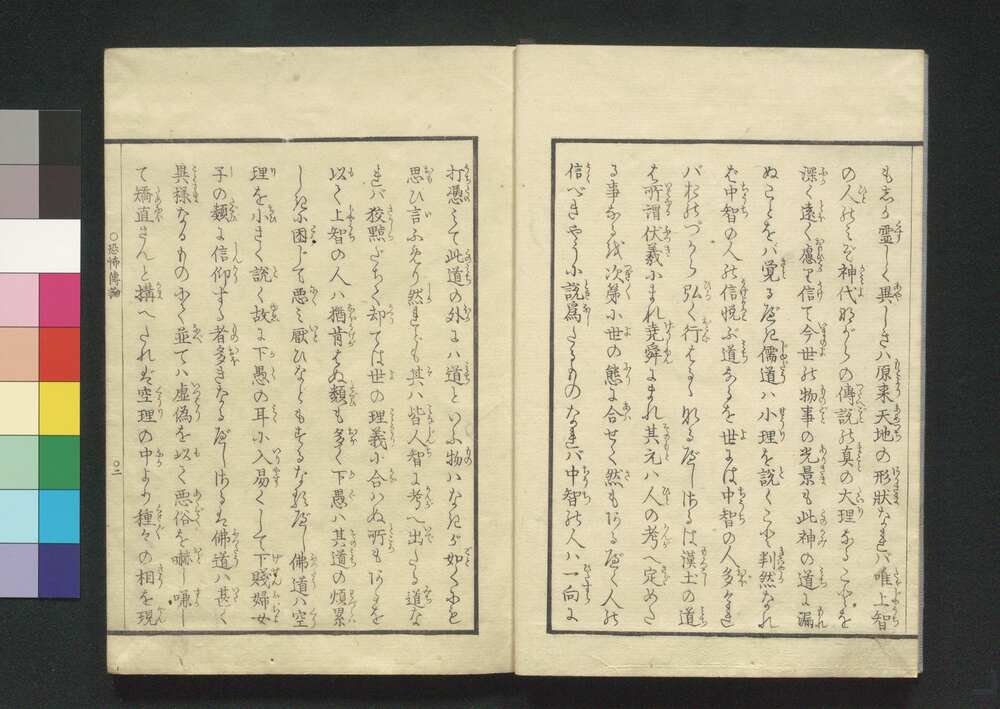 も且霊しく異しきハ原来天地の形状なれバ唯上智
の人のミぞ神代ながらの傳説の真の大理なることを
深く遠く慮り信て今世の物事の光景も此神の道に漏
ぬことをバ覚るべき儒道ハ小理を説くこと判然なれ
ば中智の人の信悦ぶ道なるを世には中智の人多くれ
バおのづから弘く行はるゝなるべしさるは漢土の道
は所謂伏羲にまれ堯舜にまれ其元ハ人の考へ定めた
る事なるを次第に世の態に合せて然もあるべく人の
信べきやうに説為たるものなれバ中智の人ハ一向に
打憑ミて此道の外にハ道といふ物ハなきが如くにも
思ひ言ふめり然れども其ハ皆人智に考へ出たる道な
れバ狡黠だちて却ては世の理義に合ハぬ所もあるを
以て上智の人ハ猶肯はぬ類も多く下愚ハ其道の煩累
しきに困じて悪ミ厭ひなどもするなるべし佛道ハ空
理を小さく説く故に下愚の耳に入易くして下賤婦女
子の類に信仰する者多きなるべしさるは佛道ハ甚く
異様なるものにて並てハ虚偽を以て悪俗を嚇し嗛し
て矯直さんと構へたれば空理の中より種々の相を現
○恐怖傳論
○二